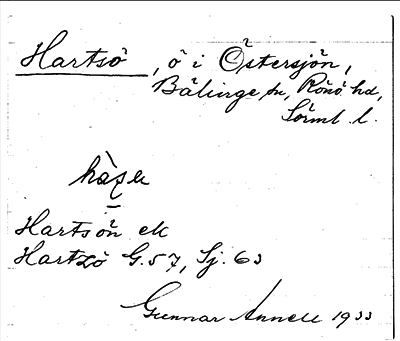 Hartsö, ö i Östersjön,
Bälinge sn, Rönö hd,
Sörml. l.
Hartsön ek
Hartsö G.57, Sj. 63
Gunnar Annell 1933